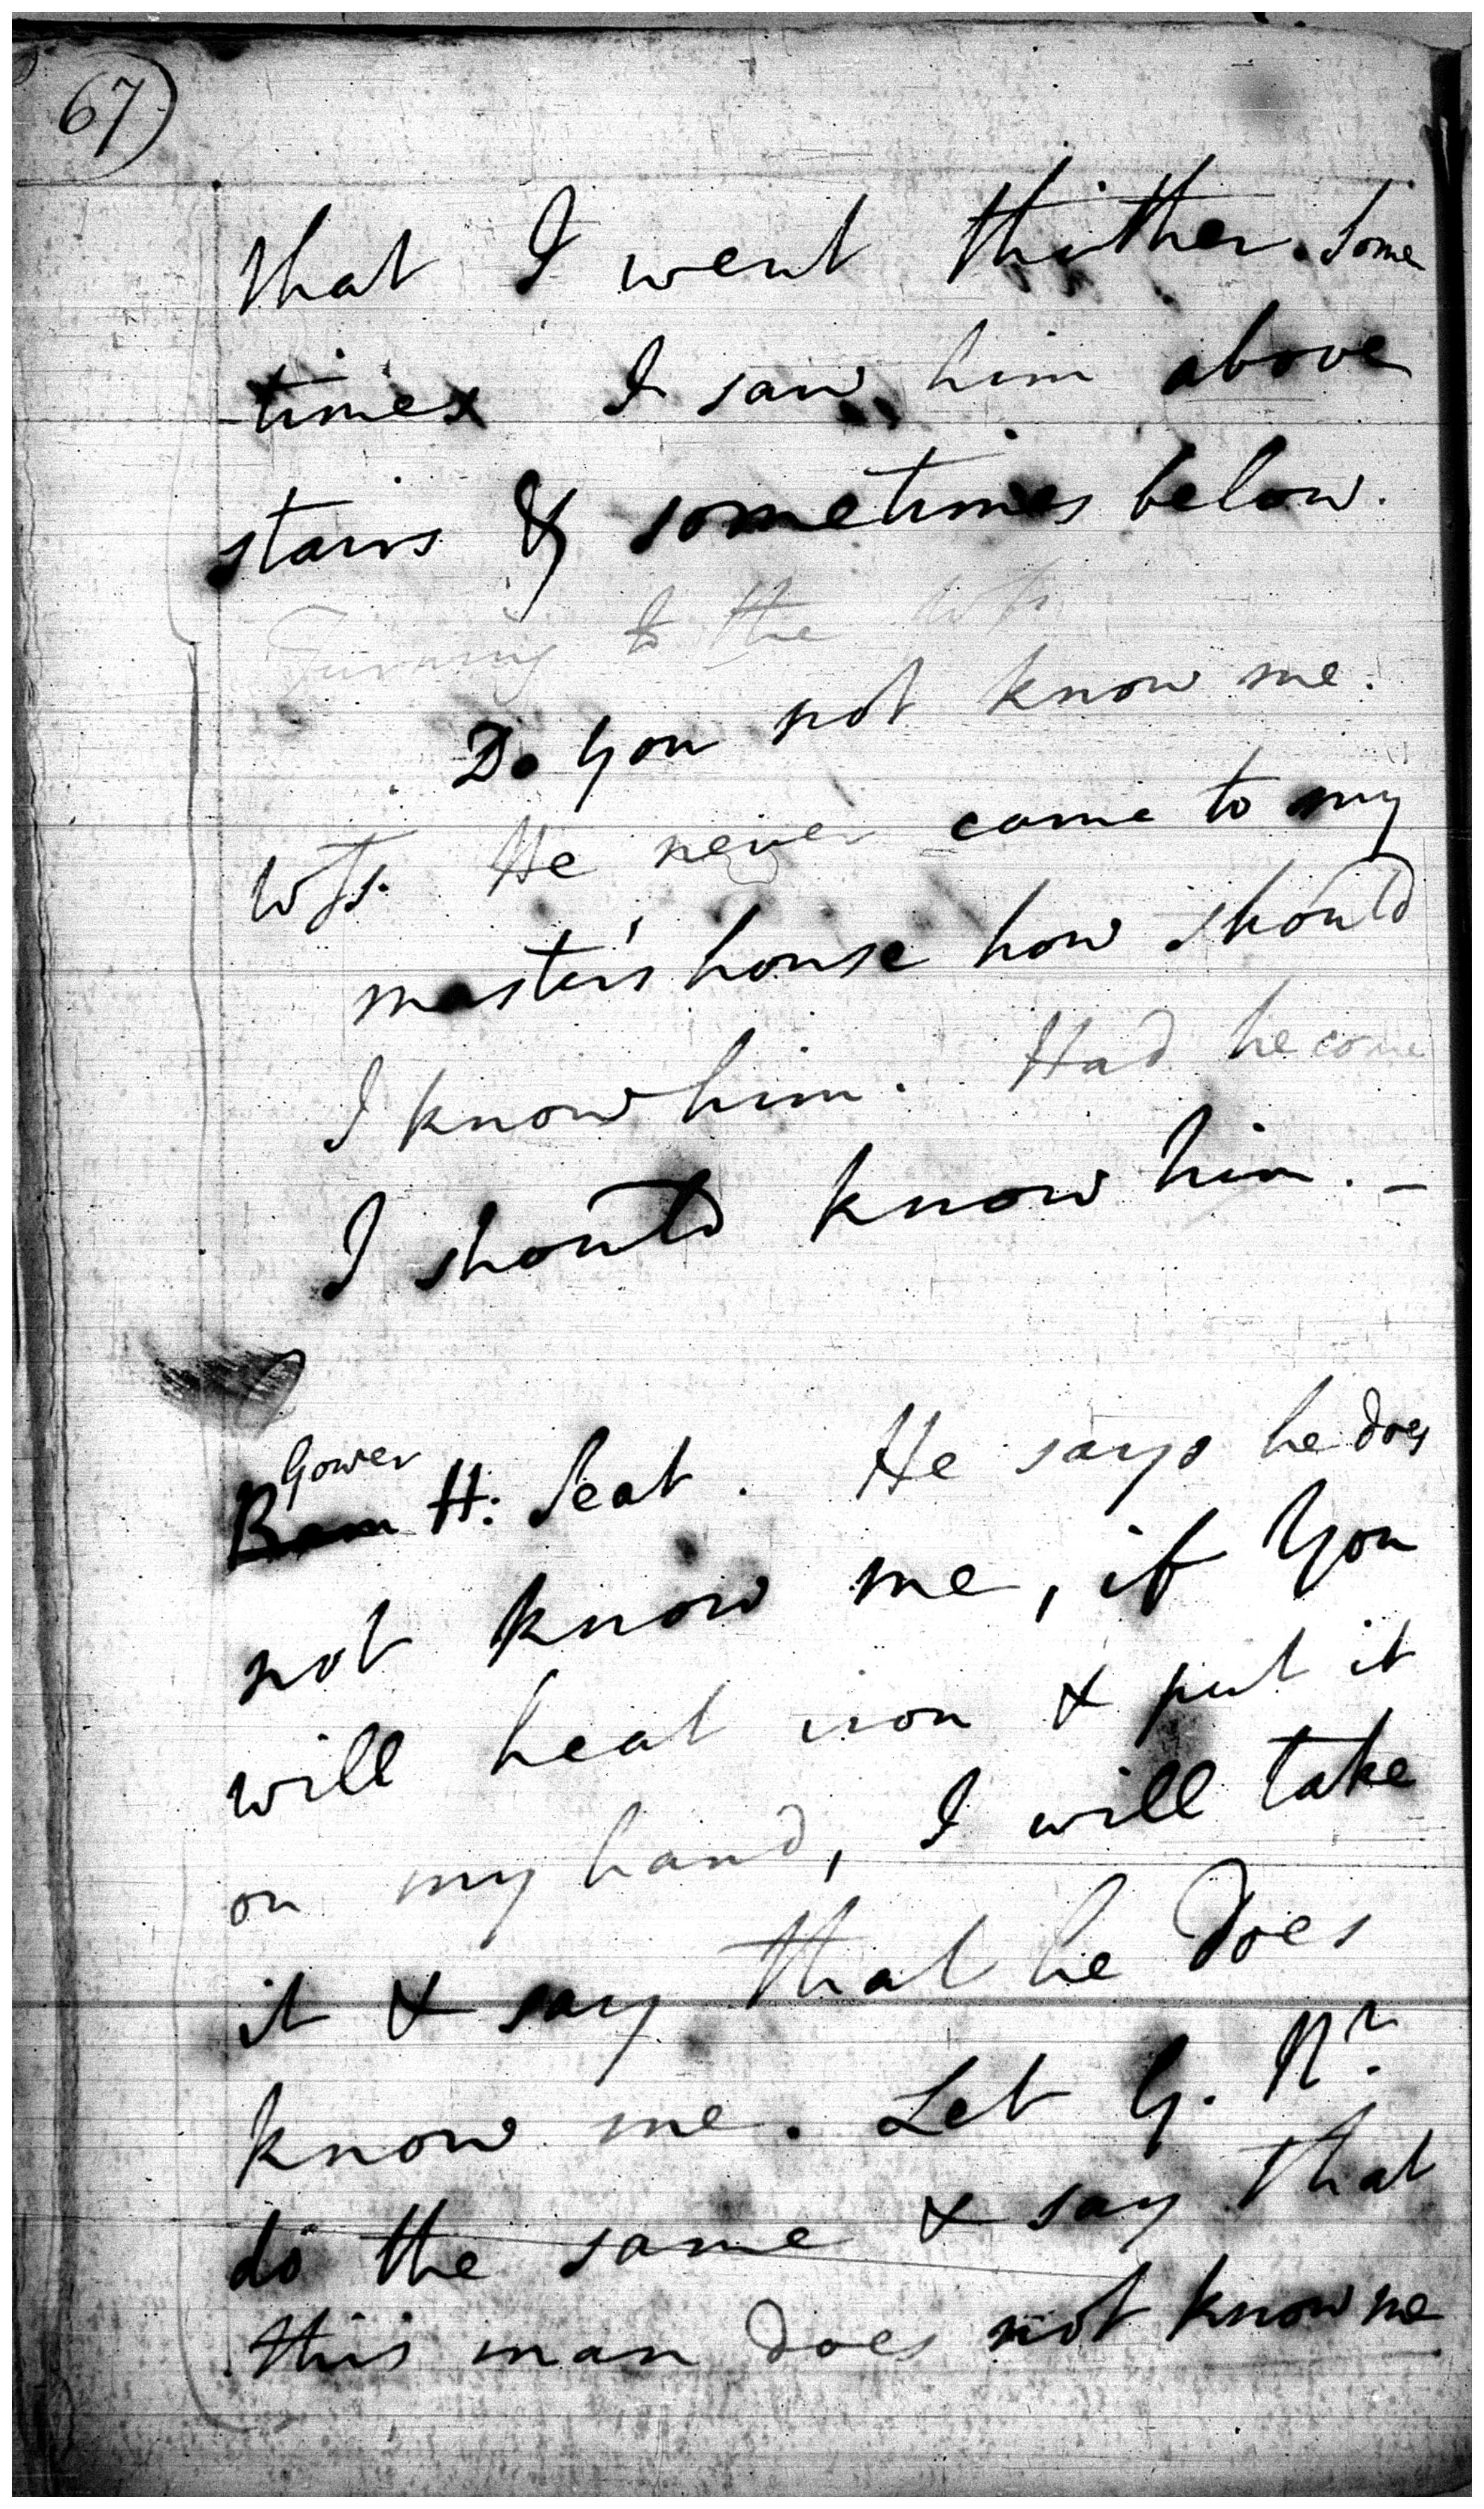 67)
that I went thither. Some
times I saw him above
stairs & sometimes below.
Turning to the Wts.
Do you not know me.
Wts. He never came to my
master's house how should
I know him. Had he come
I should know him. –
Gower
Ram H: Seat. He says he does
not know me, if you
will heat iron & put it
on my hand, I will take
it & say that he does
know me. Let G. Nr.
do the same & say that
this man does not know me